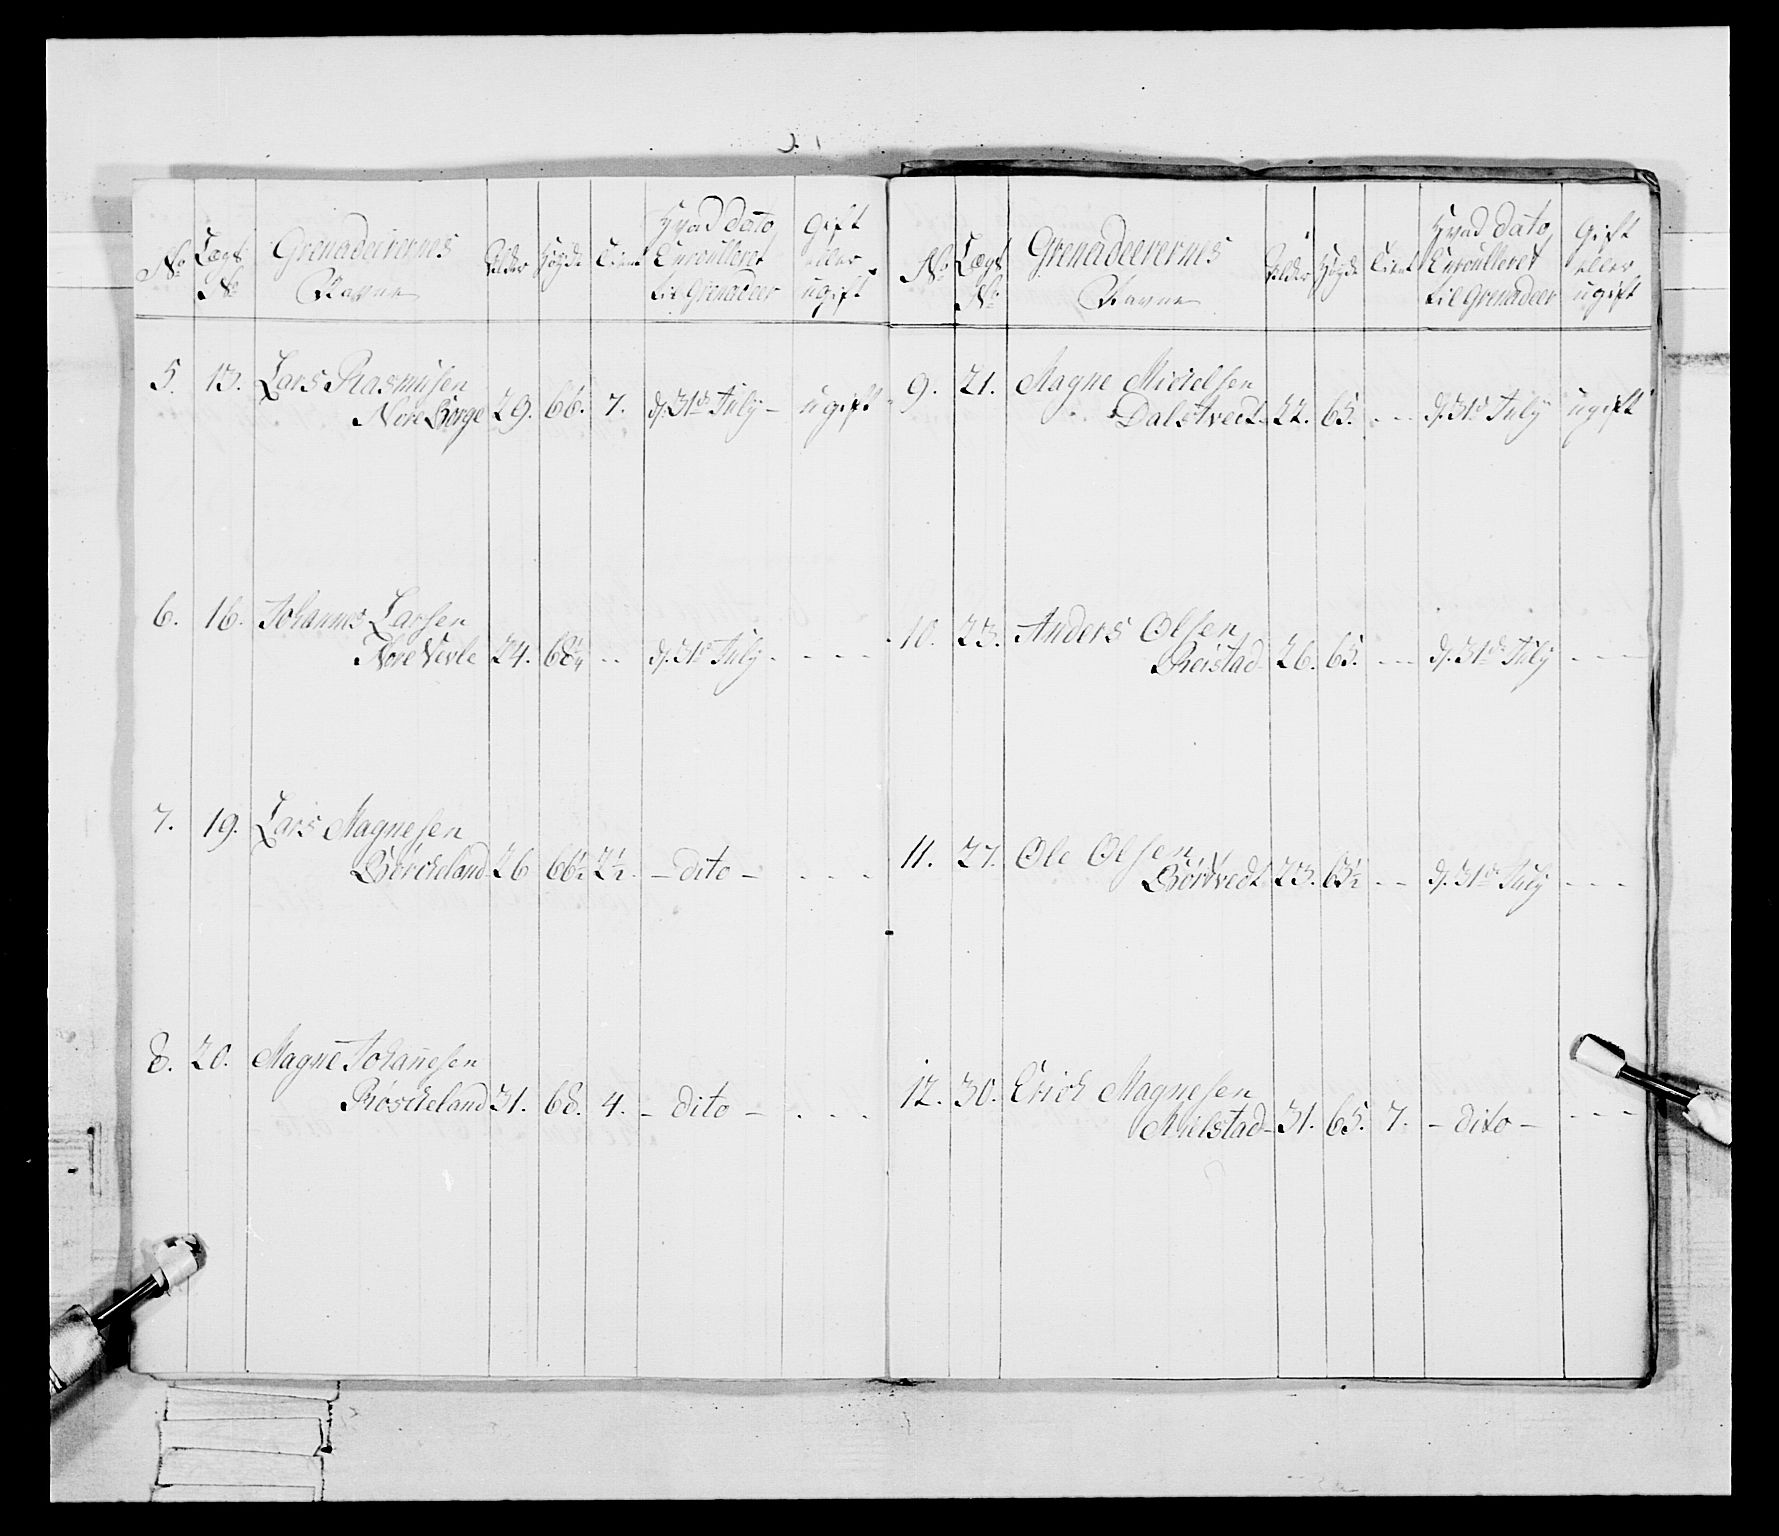 No Lægs No Grenadeerernes Navne Alder Høyde Tient Hvad Dato Enroulleret til Grenadeer gift eller ugift
5. 13. Lars Rasmusen
Nore Borge 29. 66. 7. d. 31te July - ugift
6. 16. Johannes Larsen
Nore 24. 68 1/4 - - d. 31te July - - - -
7. 19. Lars Magnesen
26 66 1/2 2 1/2 - dito - - - -
8. 20. Magne Johanesen
Røscheland 31. 68. 4. - dito - - - -
No Lægs No Grenadeerernes Navne Alder Høyde Tient Hvad Dato Enroulleret til Grenadeer gift eller ugift
9. 21. Magne Michelsen
Dalstvedt 22. 65. - - d. 31te July ugift
10. 23. Anders Olsen
Reistad 26. 65. - - d. 31te July - - -
11. 27. Ole Olsen
23. 63 1/2 - - d. 31te July - - -
12. 30. Erich Magnesen
Mielstad - 31. 65. 7. - dito - - - -